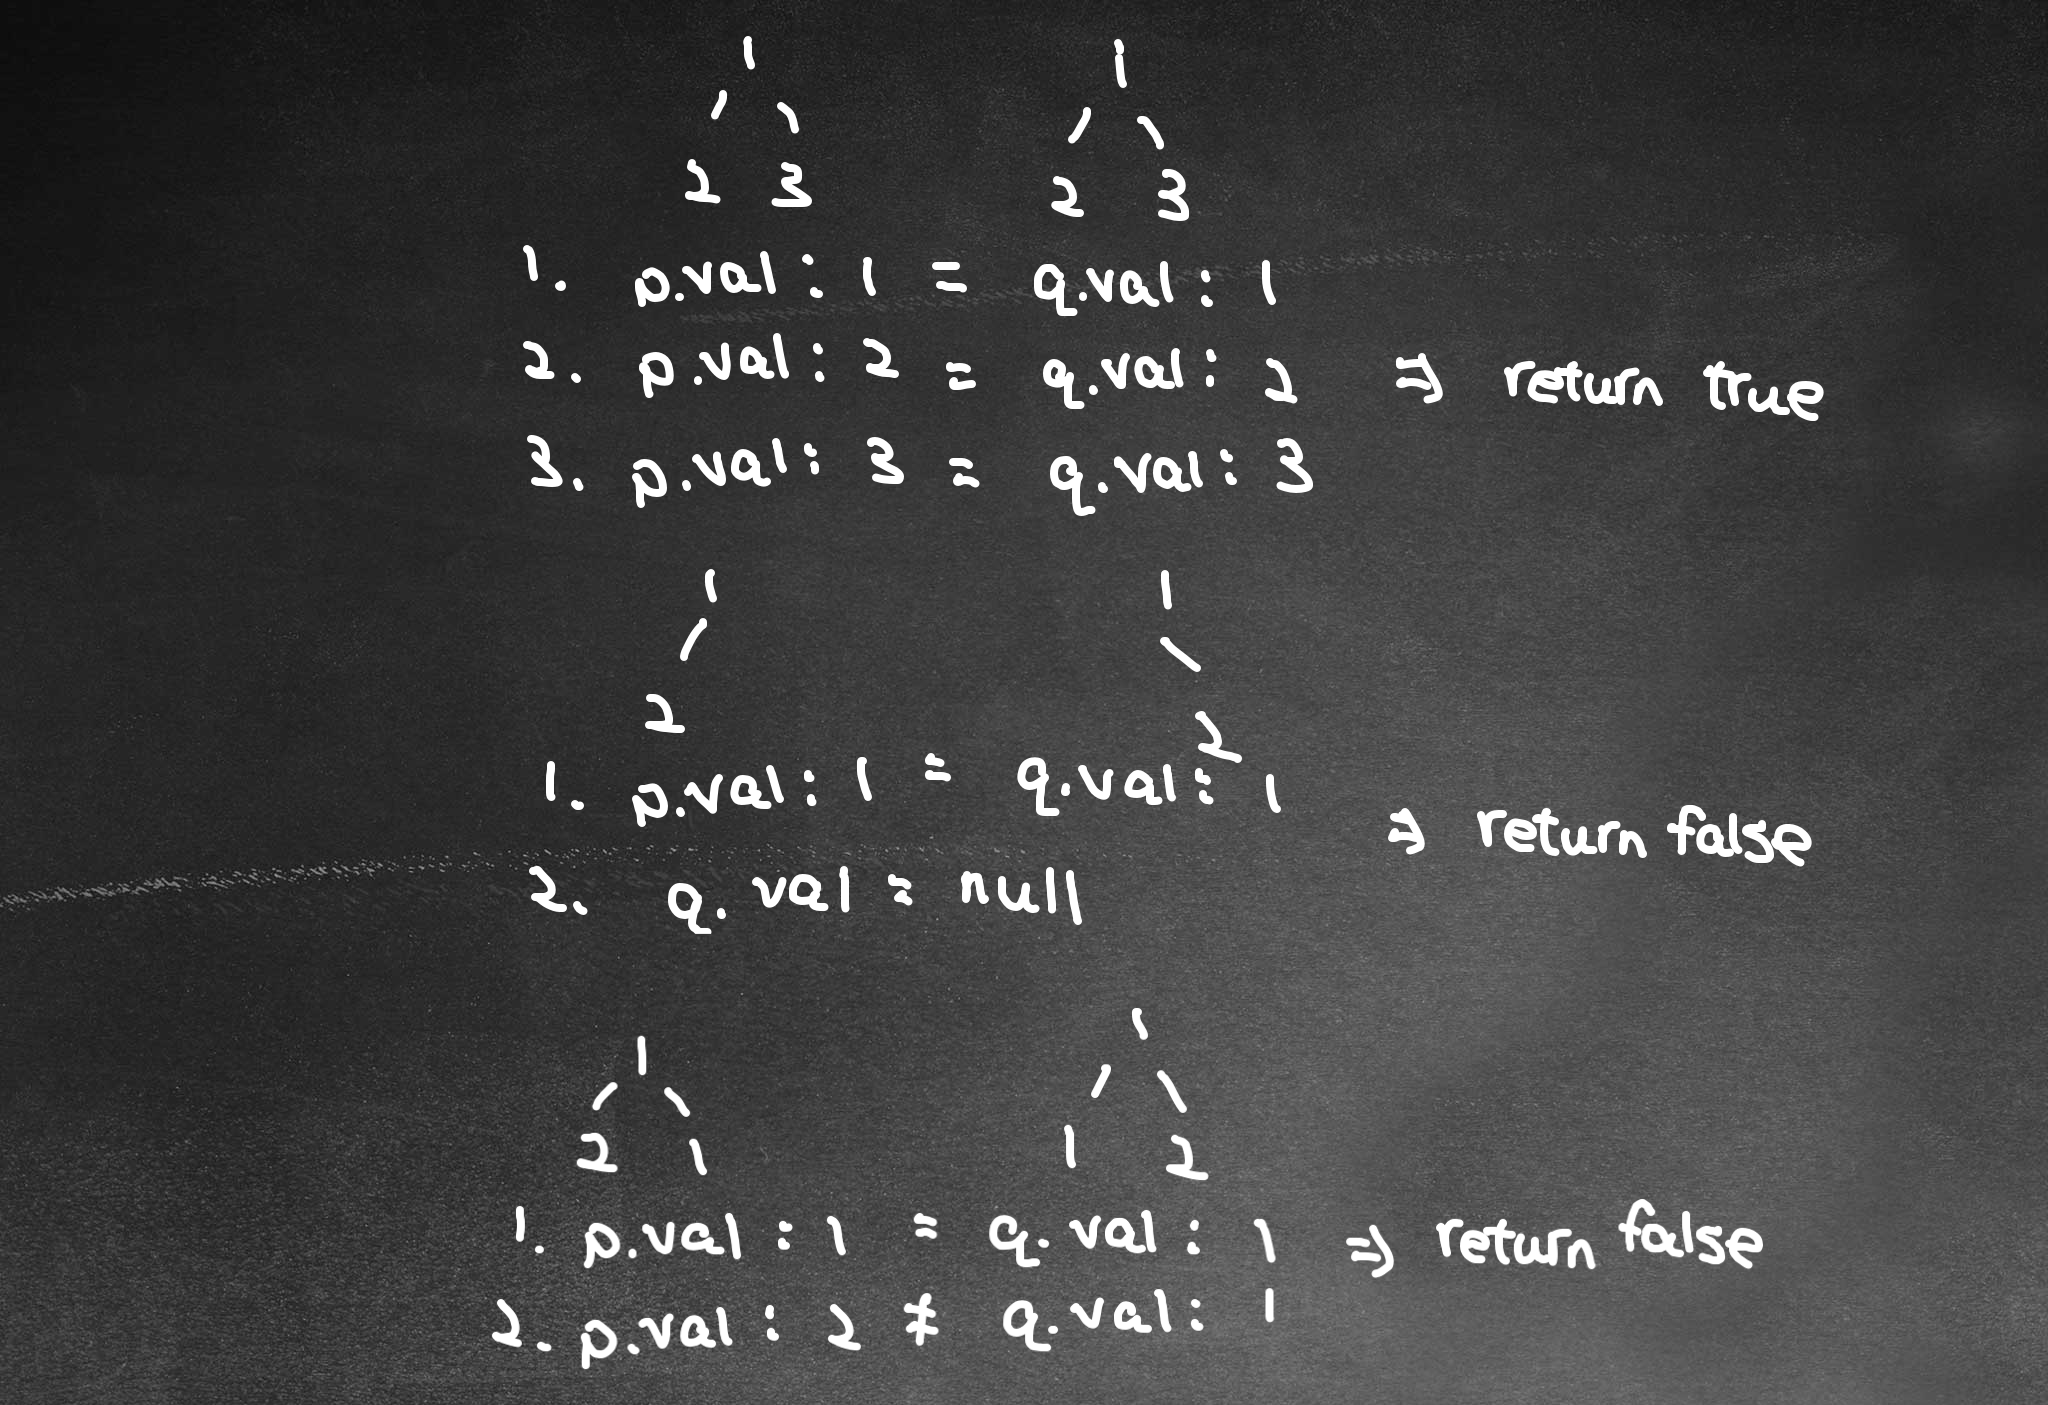 1 1
2 3 2 3
1. p.val : 1 = q.val : 1
2. p.val : 2 = q.val : 2 => return true
3. p.val : 3 = q.val : 3
1 1
2 2
1. p.val : 1 = q.val : 1
=> return false
2. q.val = null
1 1
2 1 1 2
1. p.val : 1 = q.val : 1 => return false
2. p.val : 2 ≠ q.val : 1